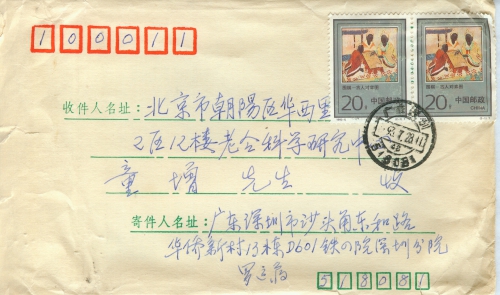 100011
围棋·五人对弈图
围棋·五人对弈图
20分 中国邮政
20分 中国邮政
CHINA
收件人名址:北京市朝陽区华西里
2区12楼老令科学研究中
童增 先生 收
寄件人名址:广东深圳市沙头角东和路
华侨新村13栋D601铁四院深圳分院
518081